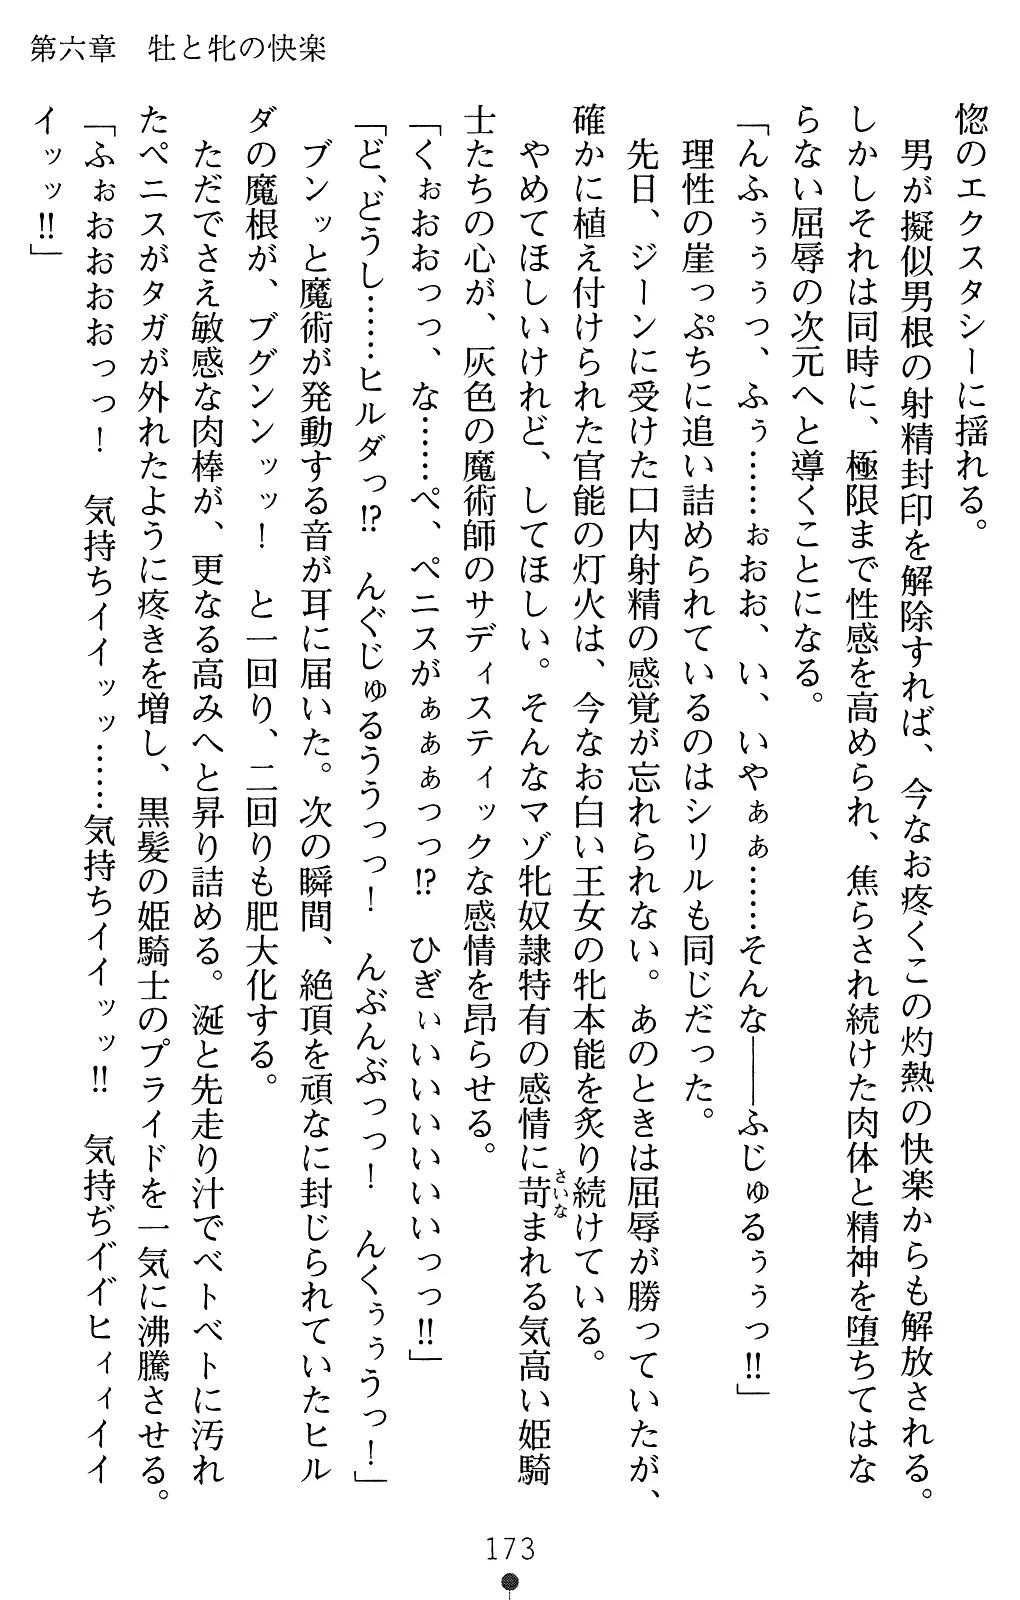 第六章　牡と牝の快楽
惚のエクスタシーに揺れる。
　男が擬似男根の射精封印を解除すれば、今なお疼くこの灼熱の快楽からも解放される。
しかしそれは同時に、極限まで性感を高められ、焦らされ続けた肉体と精神を堕ちてはな
らない屈辱の次元へと導くことになる。
「んふぅぅぅっ、ふぅ……ぉおお、い、いやぁぁ……そんな――ふじゅるぅぅっ!!」
　理性の崖っぷちに追い詰められているのはシリルも同じだった。
　先日、ジーンに受けた口内射精の感覚が忘れられない。あのときは屈辱が勝っていたが、
確かに植え付けられた官能の灯火は、今なお白い王女の牝本能を炙り続けている。
　やめてほしいけれど、してほしい。そんなマゾ牝奴隷特有の感情に苛まれる気高い姫騎
さいな
士たちの心が、灰色の魔術師のサディスティックな感情を昂らせる。
「くぉおおっっ、な……ぺ、ペニスがぁぁぁっっ!?　ひぎぃいいいいいいっっ!!」
「ど、どうし……ヒルダっ!?　んぐじゅるううっっ！　んぶんぶっっ！　んくぅぅうっ！」
　ブンッと魔術が発動する音が耳に届いた。次の瞬間、絶頂を頑なに封じられていたヒル
ダの魔根が、ブグンンッッ！　と一回り、二回りも肥大化する。
　ただでさえ敏感な肉棒が、更なる高みへと昇り詰める。涎と先走り汁でベトベトに汚れ
たペニスがタガが外れたように疼きを増し、黒髪の姫騎士のプライドを一気に沸騰させる。
「ふぉおおおおっっ！　気持ちイイッッ……気持ちイイッッ!!　気持ぢイ゛イ゛ヒィィイイ
イッッ!!」
173